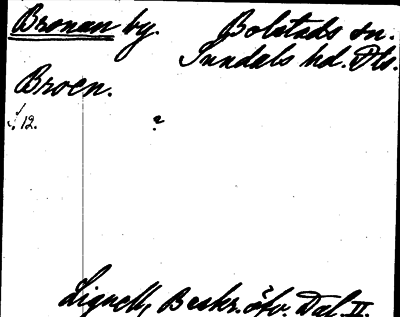 Bronan by. Bolstads sn.
Sundals hd. Dls.
Broen.
12. ?
Lignell, Beskr. öfv. Dal. II.